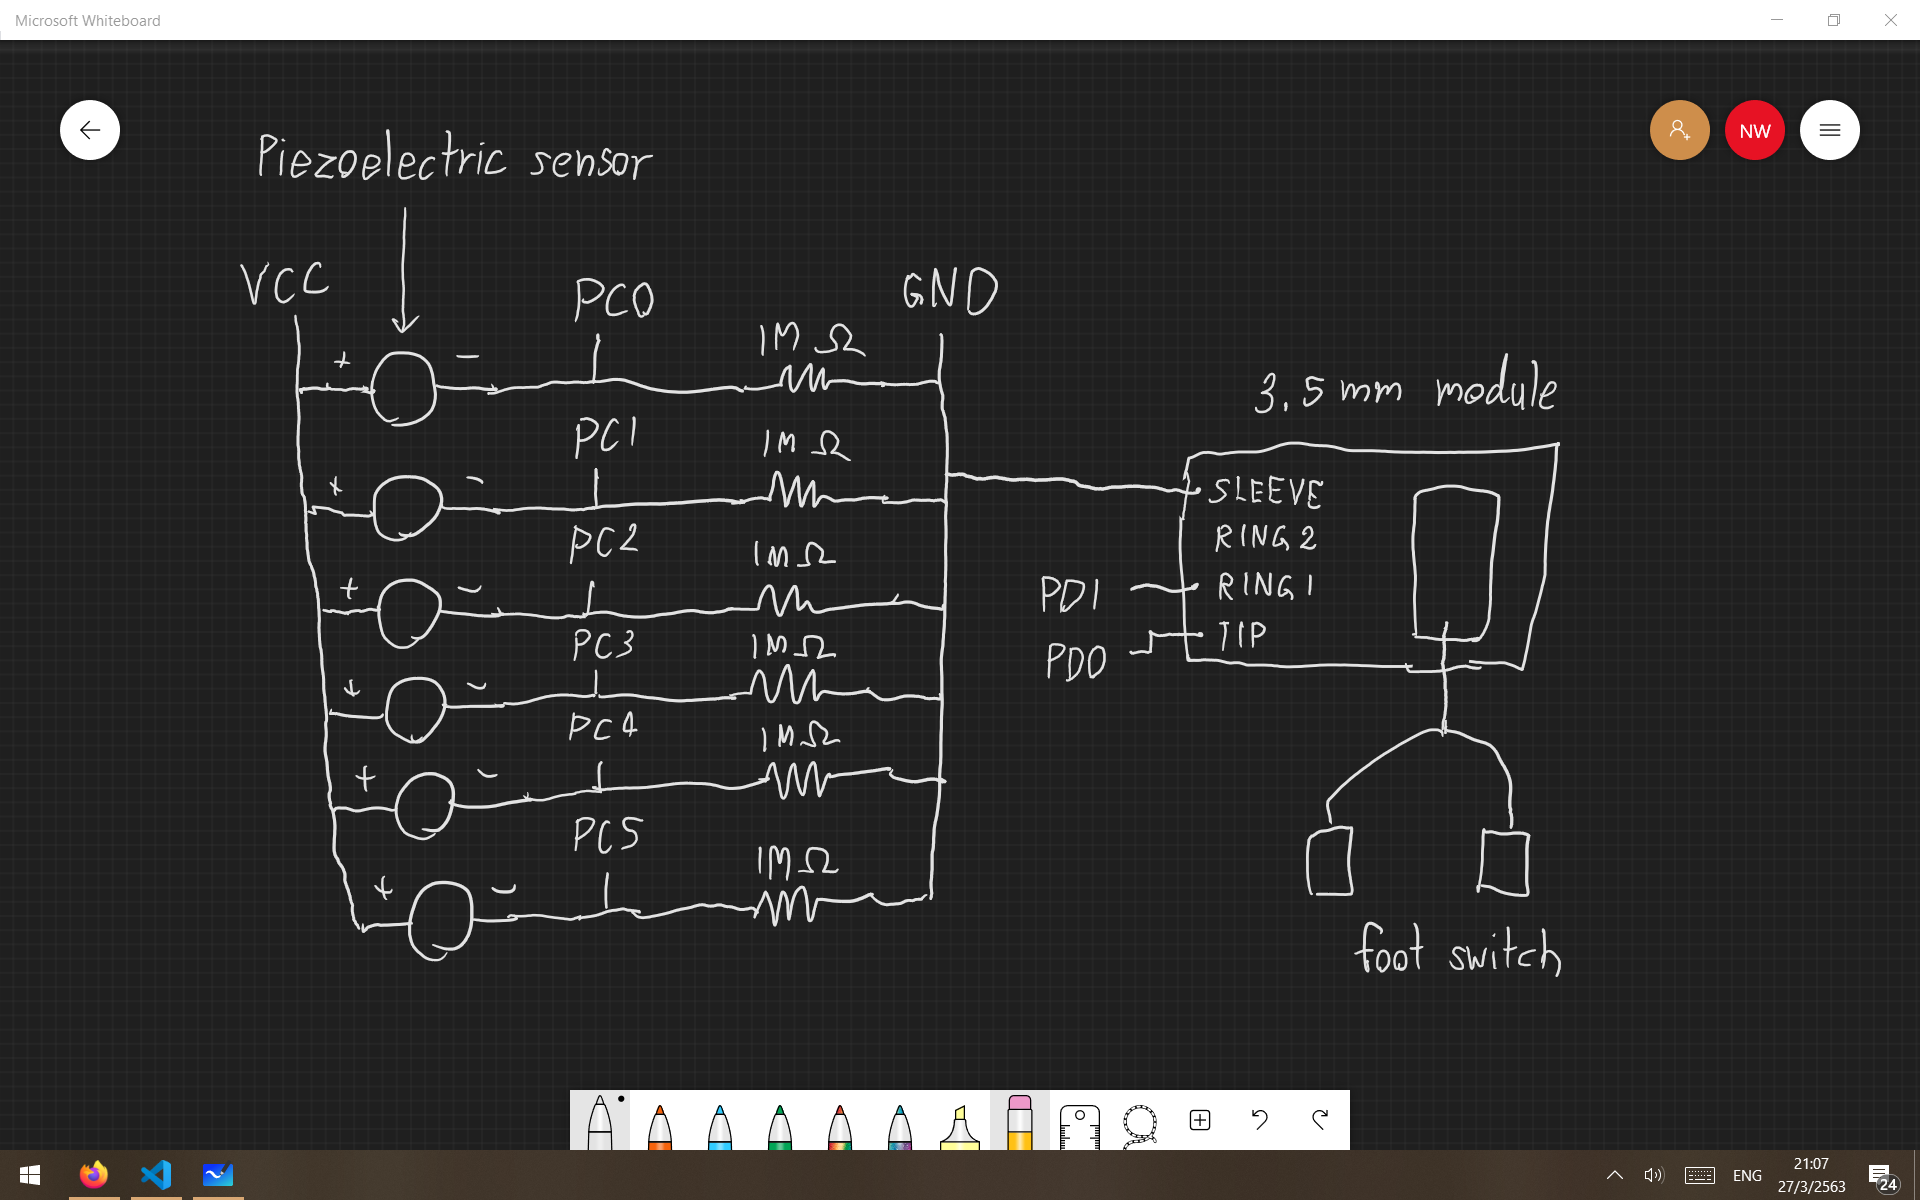 Microsoft Whiteboard
NW
Piezoelectric sensor
VCC
PC0
GND
+
−
1M Ω
PC1
1M Ω
+
−
PC2
1M Ω
+
−
PC3
1M Ω
+
−
PC4
1M Ω
+
−
PC5
1M Ω
+
−
3.5 mm module
SLEEVE
RING 2
PD1
RING 1
PD0
TIP
foot switch
ENG
21:07
27/3/2563
24